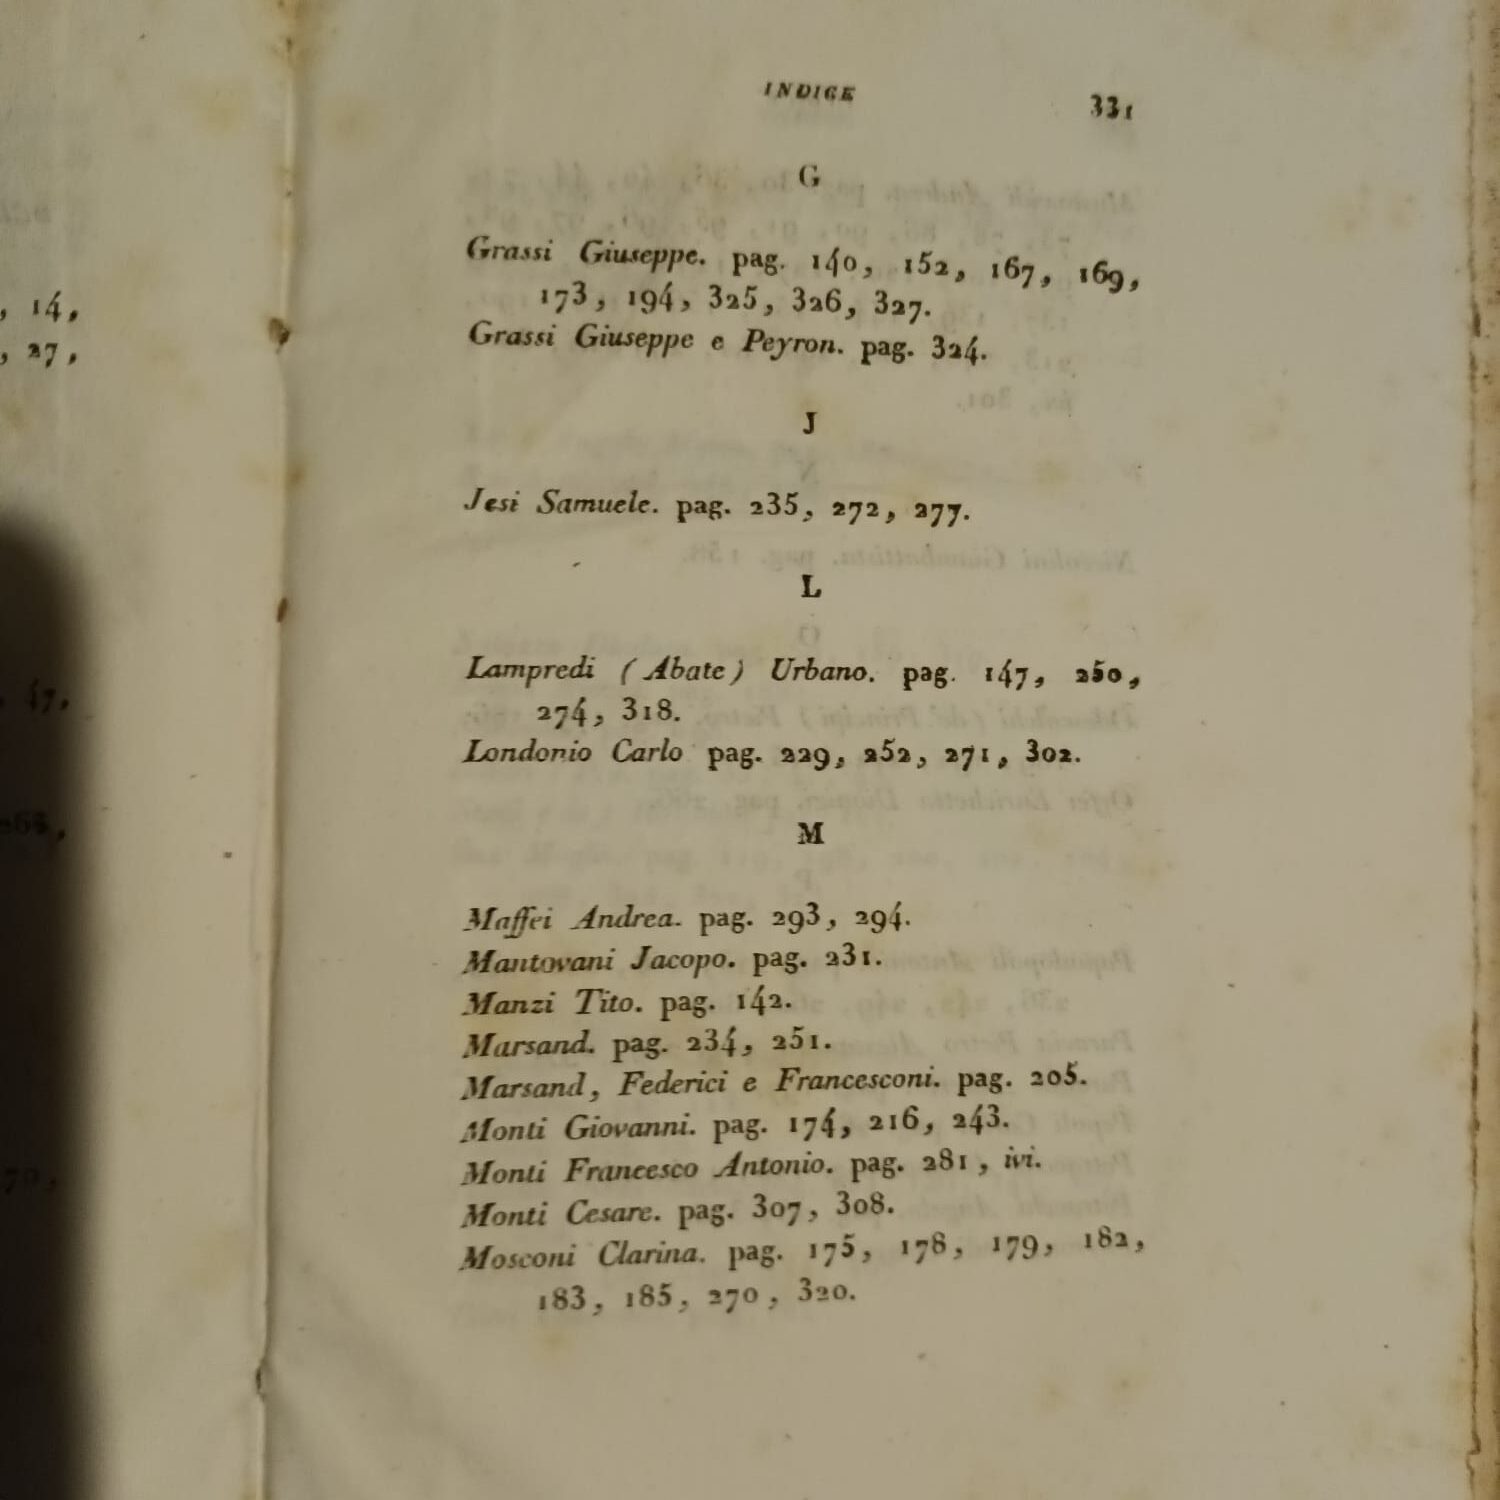 , 14,
, 27,
47,
70,
INDICE 331
G
Grassi Giuseppe. pag. 140, 152, 167, 169,
173, 194, 325, 326, 327.
Grassi Giuseppe e Peyron. pag. 324.
J
Jesi Samuele. pag. 235, 272, 277.
L
Lampredi (Abate) Urbano. pag. 147, 250,
274, 318.
Londonio Carlo pag. 229, 252, 271, 302.
M
Maffei Andrea. pag. 293, 294.
Mantovani Jacopo. pag. 231.
Manzi Tito. pag. 142.
Marsand. pag. 234, 251.
Marsand, Federici e Francesconi. pag. 205.
Monti Giovanni. pag. 174, 216, 243.
Monti Francesco Antonio. pag. 281, ivi.
Monti Cesare. pag. 307, 308.
Mosconi Clarina. pag. 175, 178, 179, 182,
183, 185, 270, 320.